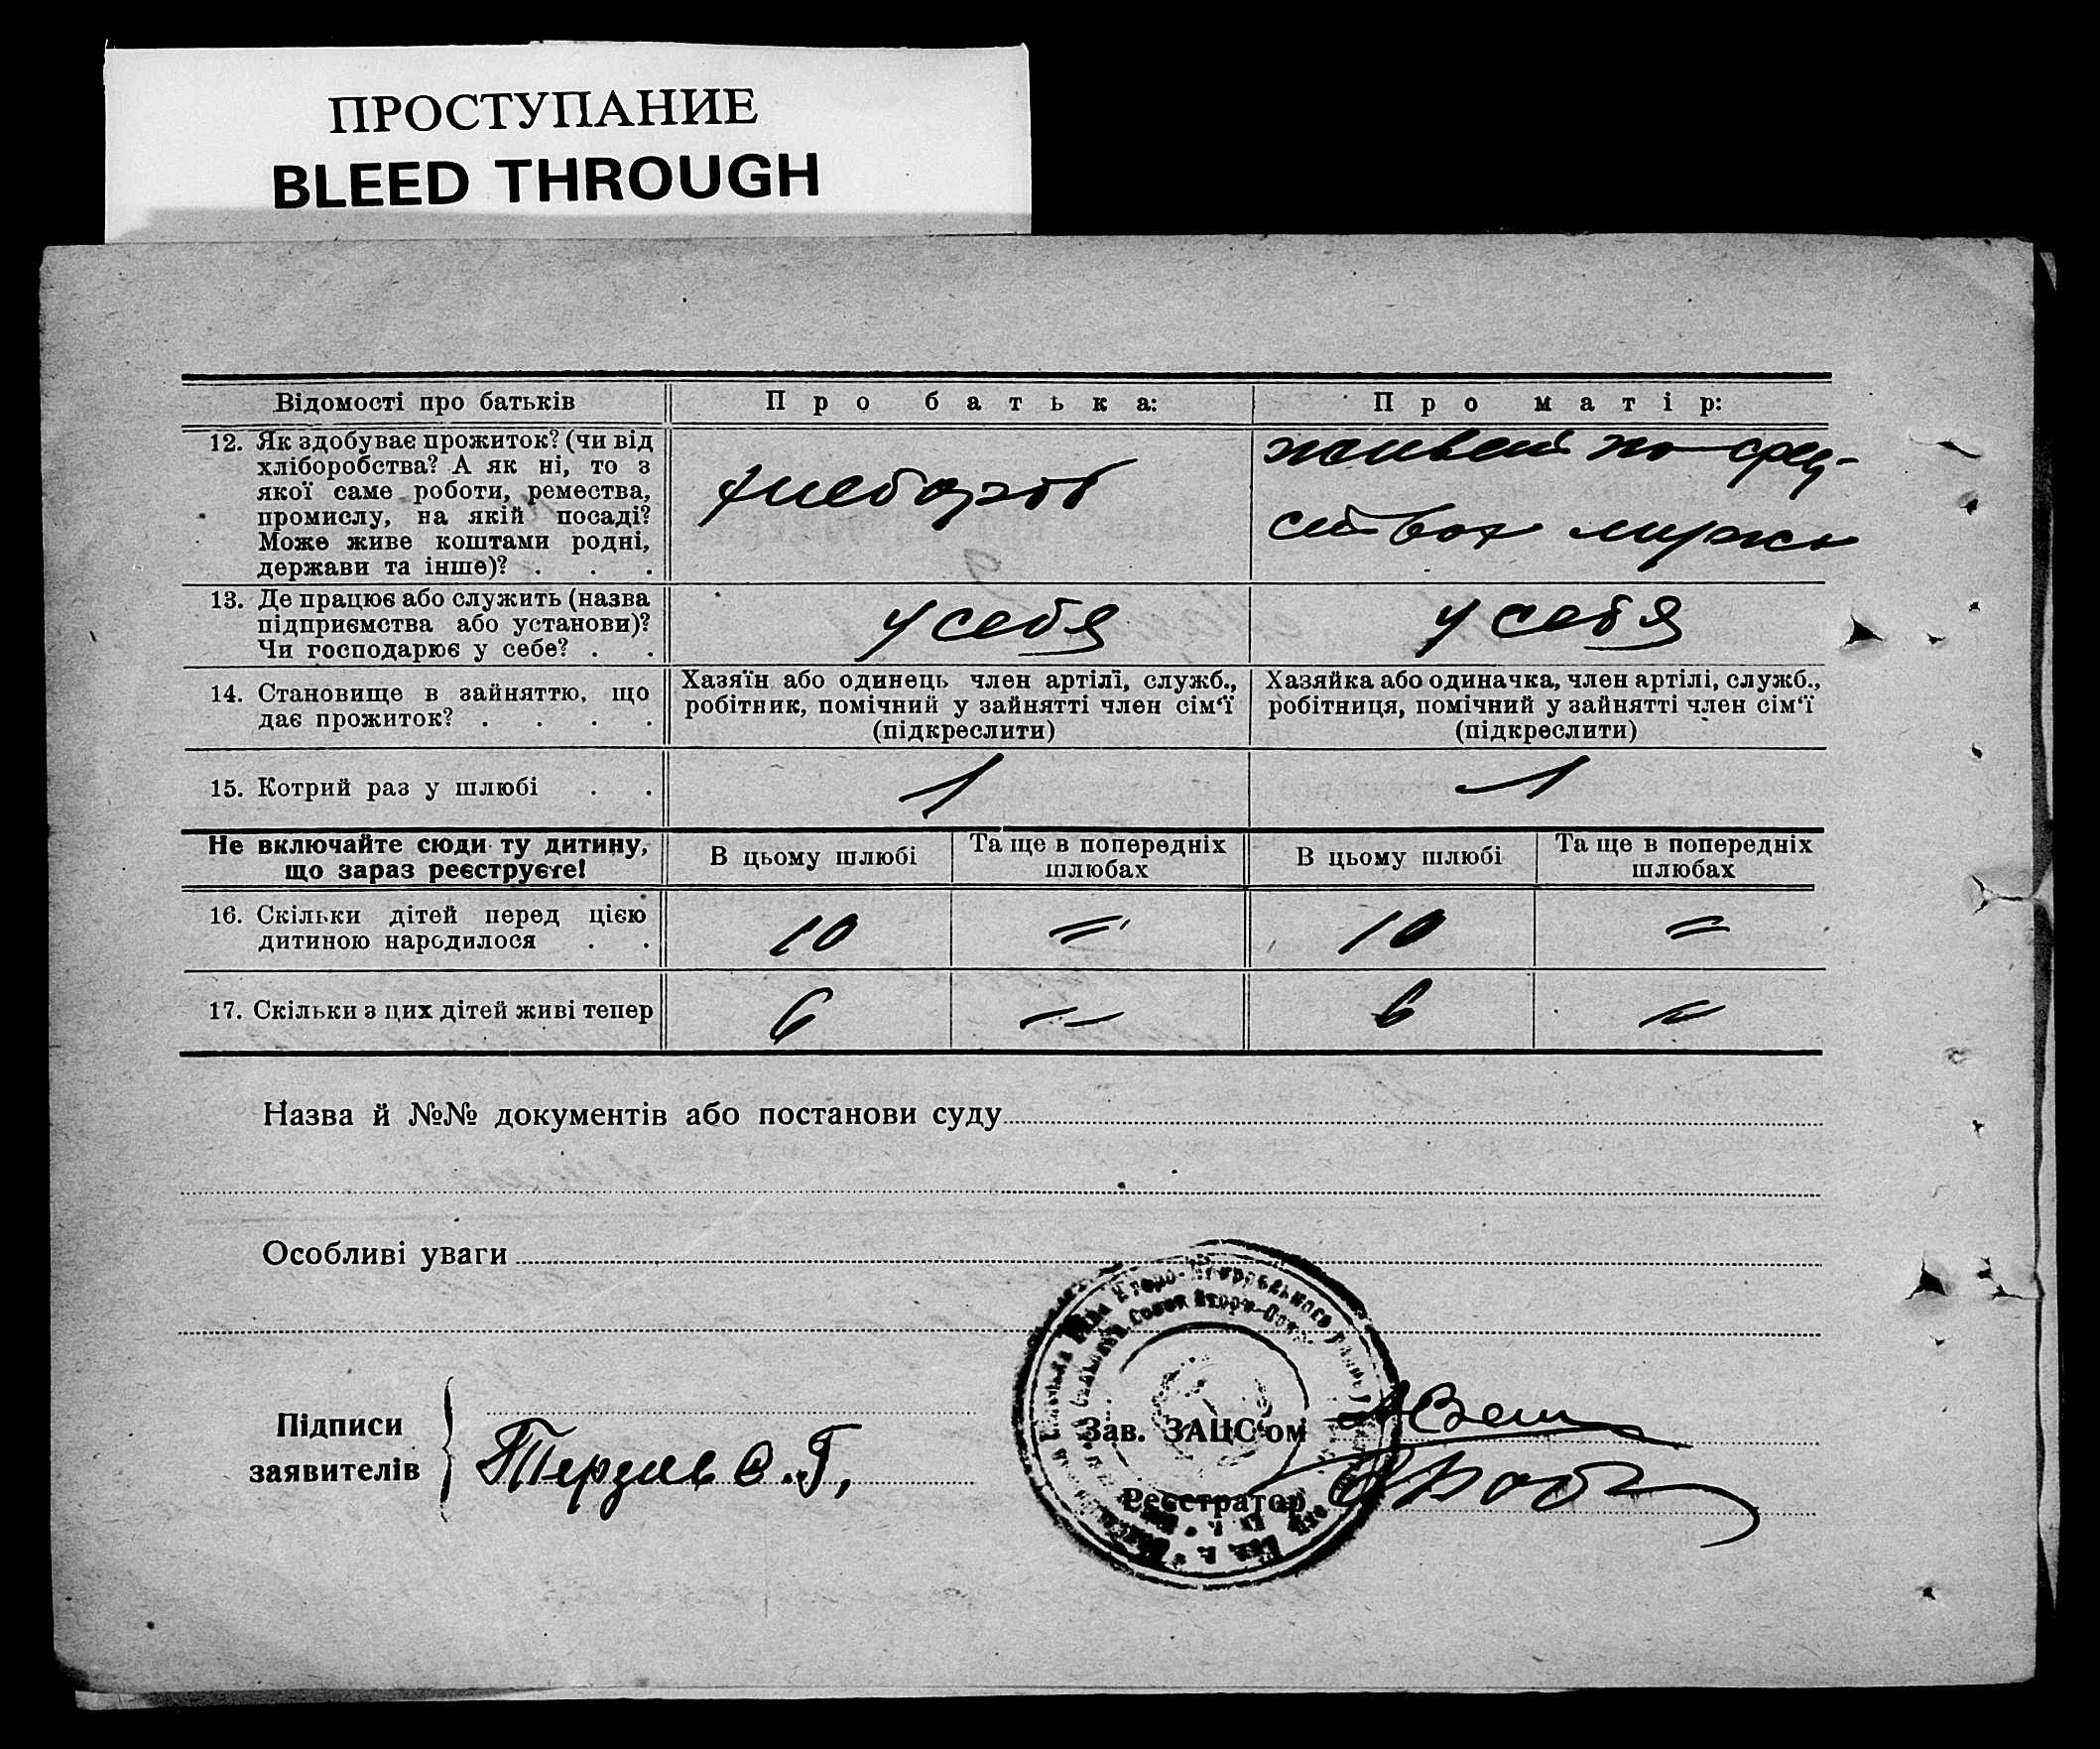 ПРОСТУПАНИЕ
BLEED THROUGH
Відомості про батьків
Про батька:
Про матір:
12. Як здобуває прожиток? (чи від
хліборобства? А як ні, то з
якої саме роботи, ремества,
промислу, на якій посаді?
Може живе коштами родні,
держави та інше)? . . .
хлебороб
живет на сред-
ствах мужа
13. Де працює або служить (назва
підприємства або установи)?
Чи господарює у себе? . .
у себя
у себя
14. Становище в зайняттю, що
дає прожиток? . . . .
Хазяїн або одинець член артілі, служб.,
робітник, помічний у зайнятті член сім‘ї
(підкреслити)
Хазяйка або одиначка, член артілі, служб.,
робітниця, помічний у зайнятті член сім‘ї
(підкреслити)
15. Котрий раз у шлюбі . .
1
1
Не включайте сюди ту дитину,
що зараз реєструєте!
В цьому шлюбі
Та ще в попередніх
шлюбах
В цьому шлюбі
Та ще в попередніх
шлюбах
16. Скільки дітей перед цією
дитиною народилося . .
10
=
10
=
17. Скільки з цих дітей живі тепер
6
=
6
=
Назва й №№ документів або постанови суду
Особливі уваги
Підписи
заявителів
Терзив С. Г,
Зав. ЗАЦС‘ом
Реєстратор